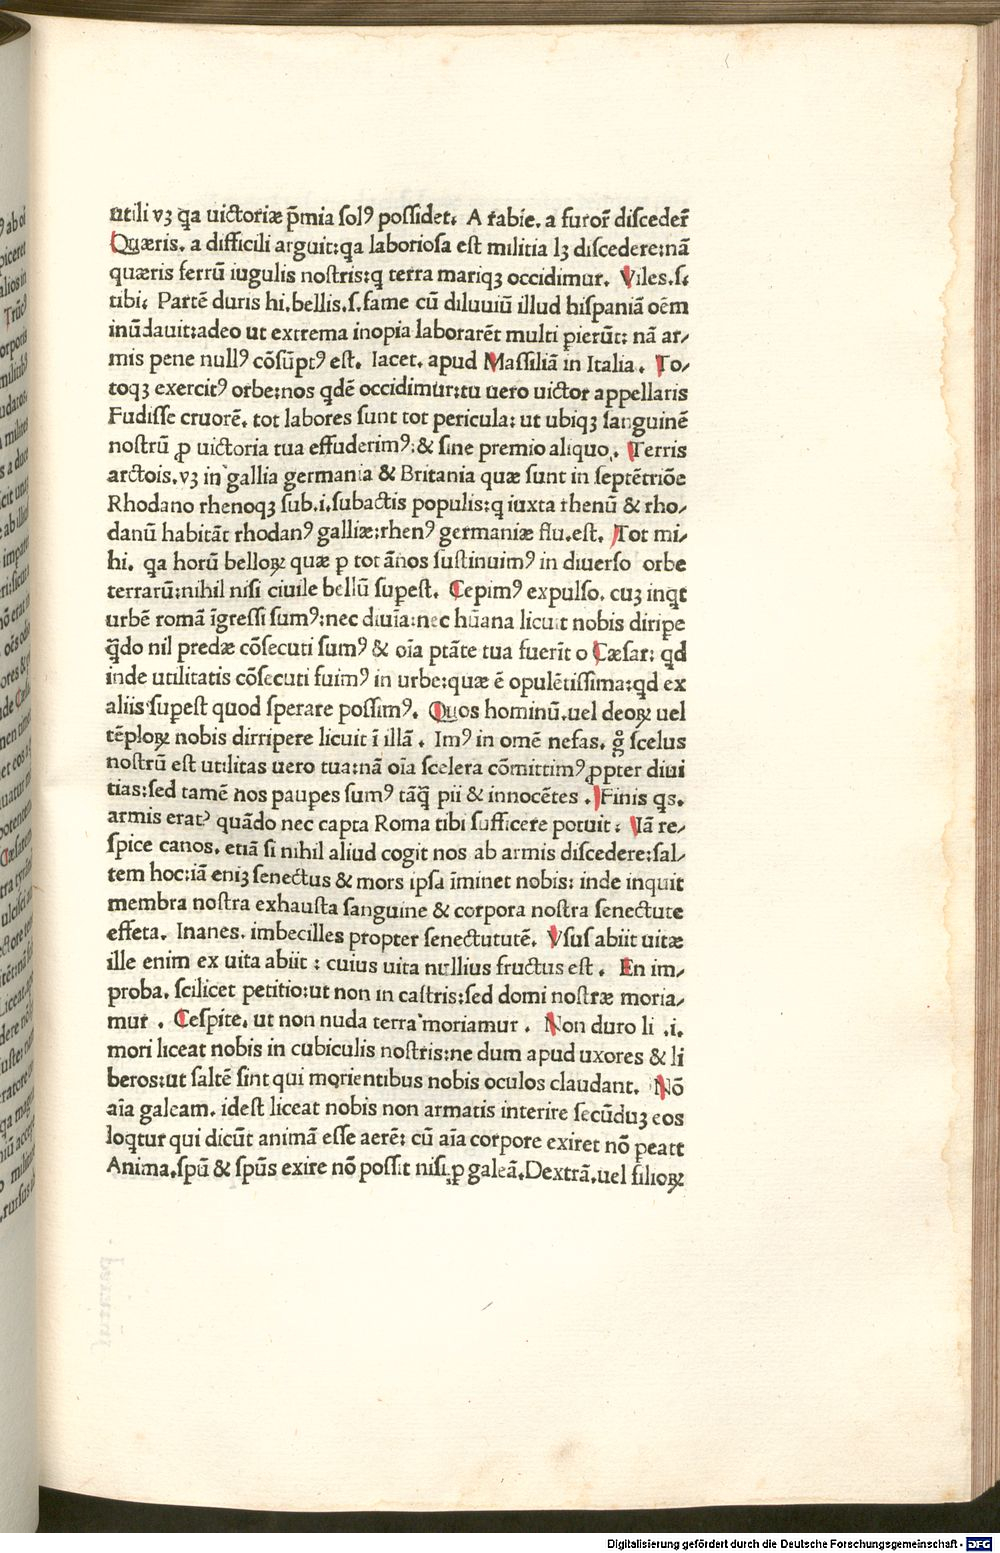 utili vꝫ q̄a uictoriæ p̄mia solꝰ possidet. A rabie. a furor̄ disceder̄
Quæris. a difficili arguit:qa laboriosa est militia lꝫ discedere:nā
quæris ferrū iugulis nostris:q terra mariqꝫ occidimur. Viles.s.
tibi. Partē duris hi.bellis.s.fame cū diluuiū illud hispaniā oēm
inūdauit:adeo ut extrema inopia laborarēt multi pierūt: nā ar/
mis pene nullꝰ cōsūptꝰ est. Iacet. apud Massiliā in Italia. To/
toqꝫ exercitꝰ orbe:nos qdē occidimur:tu uero uictor appellaris
Fudisse cruorē. tot labores sunt tot pericula: ut ubiqꝫ sanguinē
nostrū ꝓ uictoria tua effuderimꝰ:& sine premio aliquo. Terris
arctois.vꝫ in gallia germania & Britania quæ sunt in septētriōe
Rhodano rhenoqꝫ sub.i.subactis populis:q iuxta rhenū & rho/
danū habitāt rhodanꝰ galliæ:rhenꝰ germaniæ flu.est. Tot mi/
hi. qa horū belloꝝ quæ ꝑ tot ānos sustinuimꝰ in diuerso orbe
terrarū:nihil nisi ciuile bellū suꝑest. Cepimꝰ expulso. cuꝫ inqt
urbē romā īgressi sumꝰ:nec diuīa:nec hūana licuit nobis diriꝑe
q̄do nil predæ cōsecuti sumꝰ & oīa ptāte tua fuerīt o Cæsar: qd
inde utilitatis cōsecuti fuimꝰ in urbe:quæ ē opulētissima:qd ex
aliis suꝑest quod sperare possimꝰ. Quos hominū.uel deoꝝ uel
tēploꝝ nobis dirripere licuit ī illā. Imꝰ in omē nefas. g̊ scelus
nostrū est utilitas uero tua:nā oīa scelera cōmittimꝰ ꝓpter diui
tias:sed tamē nos pauꝑes sumꝰ tāq̄ pii & innocētes. Finis qs.
armis eratꝰ quādo nec capta Roma tibi sufficere potuit: Iā re/
spice canos. etiā si nihil aliud cogit nos ab armis discedere:sal/
tem hoc:iā eniꝫ senectus & mors ipsa īminet nobis: inde inquit
membra nostra exhausta sanguine & corpora nostra senectute
effeta. Inanes. imbecilles propter senectututē. Vsus abiit uitæ
ille enim ex uita abiit: cuius uita nullius fructus est. En im/
proba. scilicet petitio:ut non in castris:sed domi nostræ moria/
mur. Cespite. ut non nuda terra moriamur. Non duro li .i.
mori liceat nobis in cubiculis nostris:ne dum apud uxores & li
beros:ut saltē sint qui morientibus nobis oculos claudant. Nō
aīa galeam. idest liceat nobis non armatis interire secūduꝫ eos
loqtur qui dicūt animā esse aerē: cū aīa corpore exiret nō ꝑeatt
Anima.spū & spūs exire nō possit nisi ꝑ galeā.Dextrā.uel filioꝝ
Digitalisierung gefördert durch die Deutsche Forschungsgemeinschaft - DFG